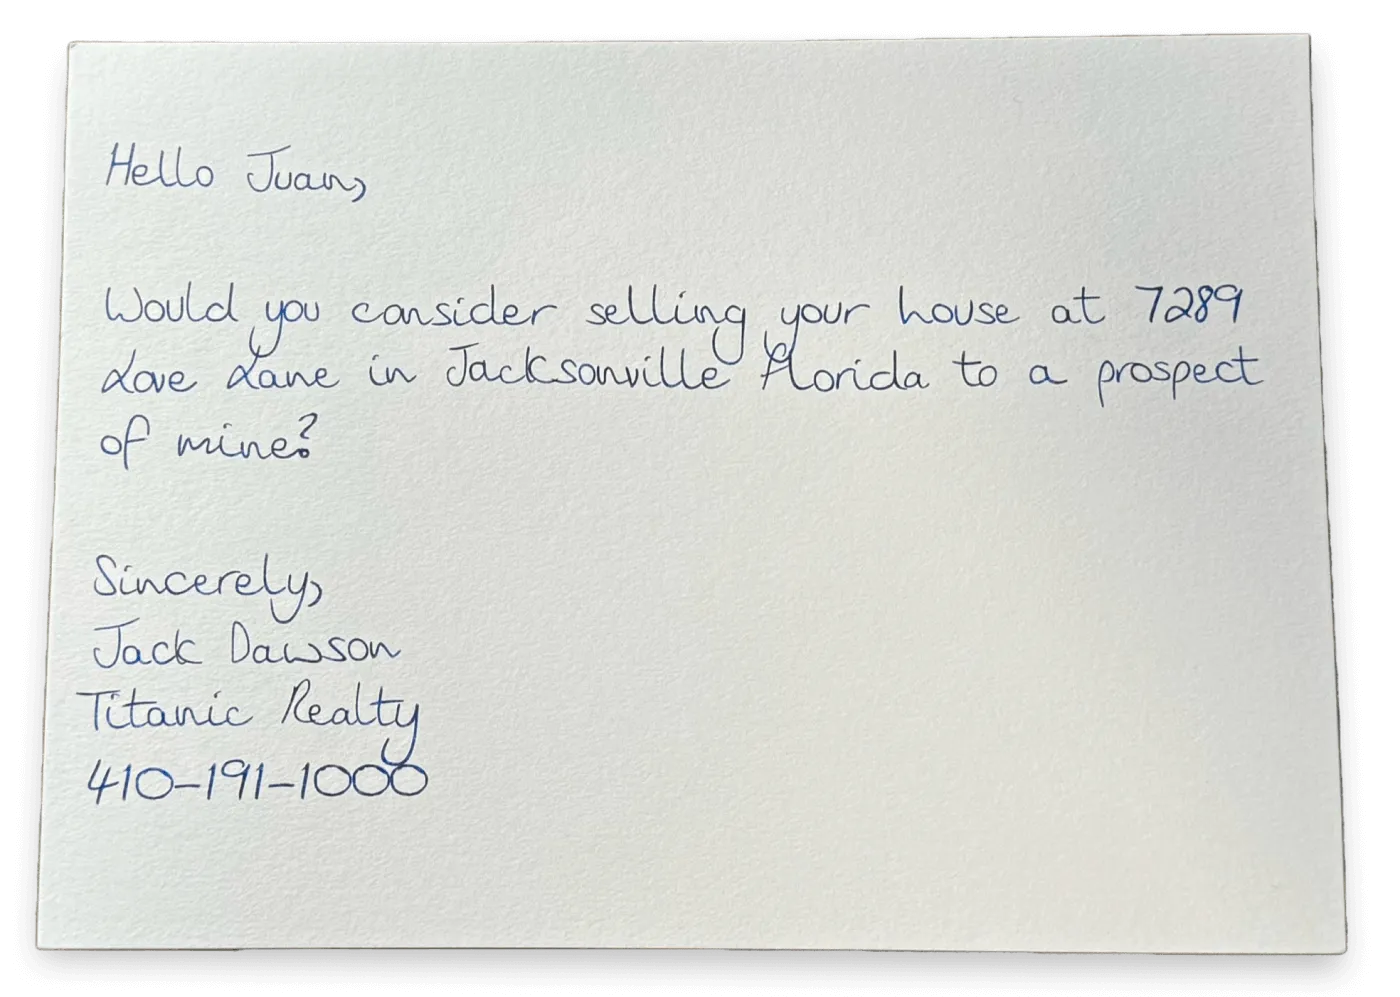 Hello Juan,
Would you consider selling your house at 7289
Love Lane in Jacksonville Florida to a prospect
of mine?
Sincerely,
Jack Dawson
Titanic Realty
410-191-1000